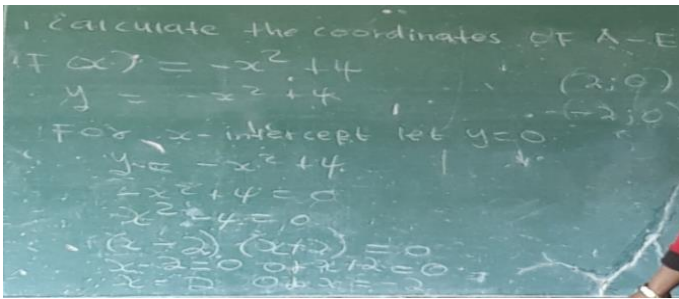 1 Calculate the coordinates OF A-E
F(x) = -x² + 4
y = -x² + 4
(2;0)
(-2;0)
For x-intercept let y=0
y = -x² + 4
-x² + 4 = 0
x² - 4 = 0
(x-2) (x+2) = 0
x-2=0 or x+2=0
x = 2 or x = -2